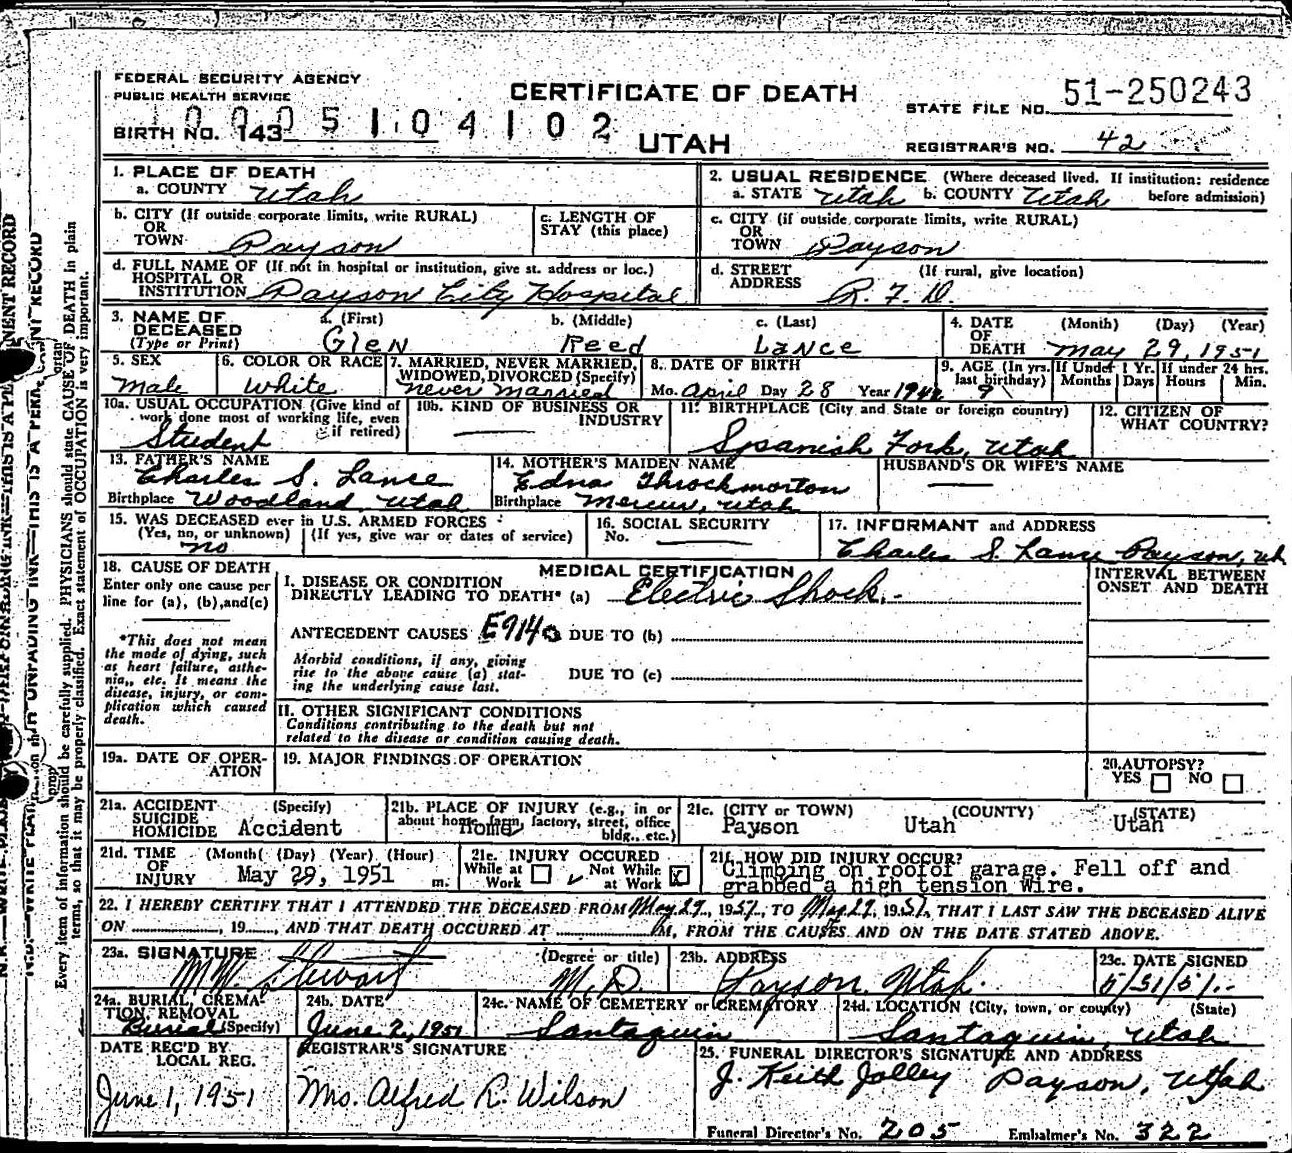 FEDERAL SECURITY AGENCY
PUBLIC HEALTH SERVICE
CERTIFICATE OF DEATH
STATE FILE NO. 51-250243
BIRTH NO. 143
UTAH
REGISTRAR'S NO. 42
1. PLACE OF DEATH
a. COUNTY Utah
2. USUAL RESIDENCE (Where deceased lived. If institution: residence before admission)
a. STATE Utah b. COUNTY Utah
b. CITY (If outside corporate limits, write RURAL)
OR
TOWN Payson
c. LENGTH OF
STAY (this place)
c. CITY (if outside corporate limits, write RURAL)
OR
TOWN Payson
d. FULL NAME OF (If not in hospital or institution, give st. address or loc.)
HOSPITAL OR
INSTITUTION Payson City Hospital
d. STREET (If rural, give location)
ADDRESS R. F. D.
3. NAME OF
DECEASED
(Type or Print)
a. (First) b. (Middle) c. (Last)
Glen Reed Lance
4. DATE (Month) (Day) (Year)
OF
DEATH May 29, 1951
5. SEX
Male
6. COLOR OR RACE
White
7. MARRIED, NEVER MARRIED,
WIDOWED, DIVORCED (Specify)
Never Married
8. DATE OF BIRTH
Mo. April Day 28 Year 1942
9. AGE (In yrs. last birthday) 9
If Under 1 Yr. Months Days
If under 24 hrs. Hours Min.
10a. USUAL OCCUPATION (Give kind of
work done most of working life, even
if retired)
Student
10b. KIND OF BUSINESS OR
INDUSTRY
11. BIRTHPLACE (City and State or foreign country)
Spanish Fork, Utah
12. CITIZEN OF
WHAT COUNTRY?
13. FATHER'S NAME
Charles S. Lance
Birthplace Woodland Utah
14. MOTHER'S MAIDEN NAME
Edna Throckmorton
Birthplace Mercur, Utah
HUSBAND'S OR WIFE'S NAME
15. WAS DECEASED ever in U.S. ARMED FORCES
(Yes, no, or unknown) (If yes, give war or dates of service)
no
16. SOCIAL SECURITY
No.
17. INFORMANT and ADDRESS
Charles S. Lance Payson, Ut
18. CAUSE OF DEATH
Enter only one cause per
line for (a), (b), and (c)
*This does not mean
the mode of dying, such
as heart failure, asthe-
nia, etc. It means the
disease, injury, or com-
plication which caused
death.
MEDICAL CERTIFICATION
I. DISEASE OR CONDITION
DIRECTLY LEADING TO DEATH* (a) Electric Shock.
INTERVAL BETWEEN
ONSET AND DEATH
ANTECEDENT CAUSES E914 DUE TO (b)
Morbid conditions, if any, giving
rise to the above cause (a) stat-
ing the underlying cause last.
DUE TO (c)
II. OTHER SIGNIFICANT CONDITIONS
Conditions contributing to the death but not
related to the disease or condition causing death.
19a. DATE OF OPER-
ATION
19. MAJOR FINDINGS OF OPERATION
20. AUTOPSY?
YES NO
21a. ACCIDENT (Specify)
SUICIDE
HOMICIDE Accident
21b. PLACE OF INJURY (e.g., in or
about home, farm, factory, street, office
bldg., etc.)
Home
21c. (CITY or TOWN) (COUNTY) (STATE)
Payson Utah Utah
21d. TIME (Month) (Day) (Year) (Hour)
OF
INJURY May 29, 1951 m.
21e. INJURY OCCURED
While at Work Not While at Work X
21f. HOW DID INJURY OCCUR?
Climbing on roof of garage. Fell off and
grabbed a high tension wire.
22. I HEREBY CERTIFY THAT I ATTENDED THE DECEASED FROM May 29, 1951, TO May 29, 1951, THAT I LAST SAW THE DECEASED ALIVE
ON , 19 , AND THAT DEATH OCCURED AT M, FROM THE CAUSES AND ON THE DATE STATED ABOVE.
23a. SIGNATURE (Degree or title)
M W Stewart M. D.
23b. ADDRESS
Payson Utah.
23c. DATE SIGNED
5/31/51
24a. BURIAL, CREMA-
TION, REMOVAL
(Specify)
Burial
24b. DATE
June 2, 1951
24c. NAME OF CEMETERY or CREMATORY
Santaquin
24d. LOCATION (City, town, or county) (State)
Santaquin, Utah
DATE REC'D BY
LOCAL REG.
June 1, 1951
REGISTRAR'S SIGNATURE
Mrs. Alfred R. Wilson
25. FUNERAL DIRECTOR'S SIGNATURE AND ADDRESS
J. Keith Jolley Payson, Utah
Funeral Director's No. 205 Embalmer's No. 322
Every item of information should be carefully supplied. PHYSICIANS should state CAUSE OF DEATH in plain
terms, so that it may be properly classified. Exact statement of OCCUPATION is very important.